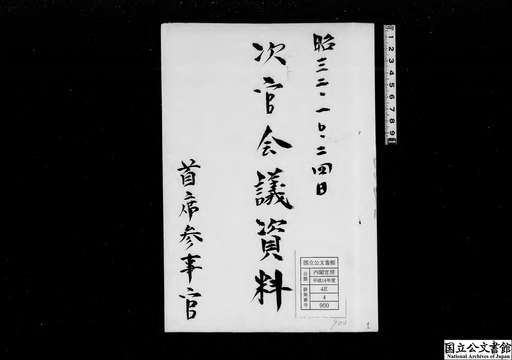 昭三二・一〇・二四日
次官会議資料
首席参事官
国立公文書館
分類
内閣官房
平成14年度
排架番号
4E
4
900
900
1
1 2 3 4 5 6 7 8 9
国立公文書館
National Archives of Japan